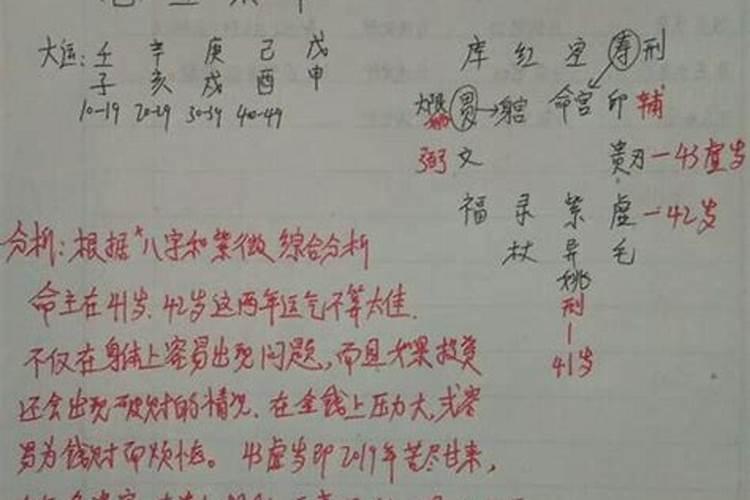 大运: 壬 辛 庚 己 戊
子 亥 戌 酉 申
10-19 20-29 30-39 40-49
库 红 空 寿 刑
大限 昌→身宫 命宫 印 辅
弼 文 贵刃-43虚岁
福 录 紫 虚-42岁
杖 异 毛
姚
刑
41岁
分析: 根据"八字和紫微综合分析
命主在41岁、42岁这两年运气不算太佳.
不仅在身体上容易出现问题,而且如果投资
还会出现破财的情况.在金钱上压力大,或容
易为钱财而烦恼。43虚岁即2019年苦尽甘来,